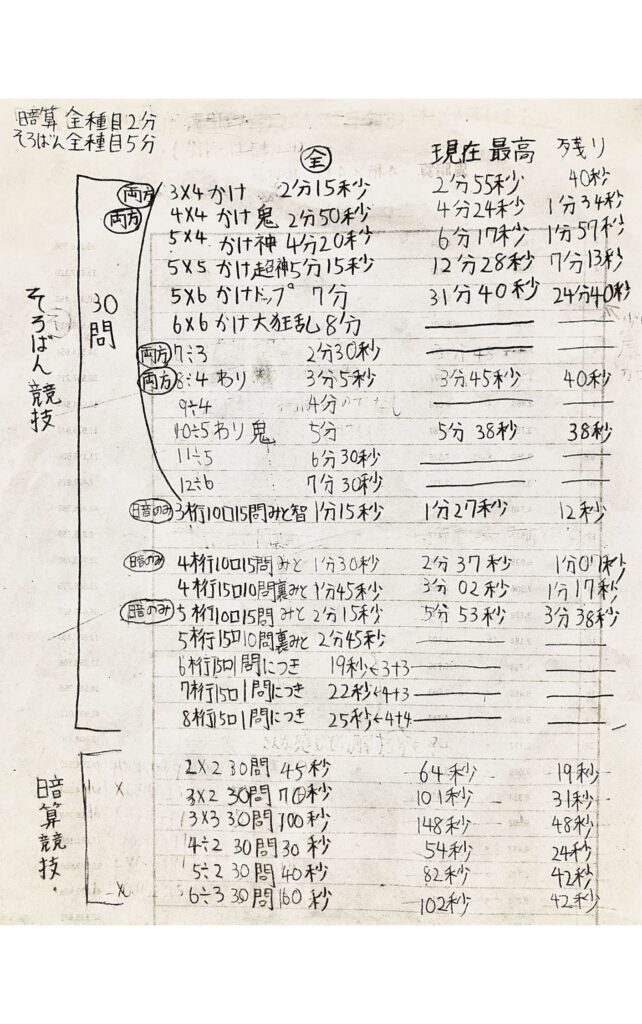 暗算 全種目2分
そろばん全種目5分
全 現在 最高 残り
両方 3×4 かけ 2分15秒 2分55秒 40秒
両方 4×4 かけ 鬼 2分50秒 4分24秒 1分34秒
5×4 かけ神 4分20秒 6分17秒 1分57秒
5×5 かけ超神5分15秒 12分28秒 7分13秒
5×6 かけドップ 7分 31分40秒 24分40秒
6×6 かけ大狂乱 8分
両方 7÷3 2分30秒
両方 8÷4 わり 3分5秒 3分45秒 40秒
9÷4 4分
10÷5 わり 鬼 5分 5分38秒 38秒
11÷5 6分30秒
12÷6 7分30秒
暗のみ 3桁10口15問みと智 1分15秒 1分27秒 12秒
暗のみ 4桁10口15問みと 1分30秒 2分37秒 1分07秒
4桁15口10問裏みと 1分45秒 3分02秒 1分17秒
暗のみ 5桁10口15問みと 2分15秒 5分53秒 3分38秒
5桁15口10問裏みと 2分45秒
6桁15口1問につき 19秒←3+3
7桁15口1問につき 22秒←4+3
8桁15口1問につき 25秒←4+4
そろばん競技
30問
2×2 30問 45秒 64秒 19秒
3×2 30問 70秒 101秒 31秒
3×3 30問 100秒 148秒 48秒
4÷2 30問 30秒 54秒 24秒
5÷2 30問 40秒 82秒 42秒
6÷3 30問 60秒 102秒 42秒
暗算競技.